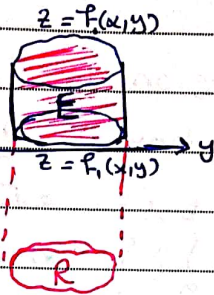 z = f(x,y)
E
y
z = f₁(x,y)
R